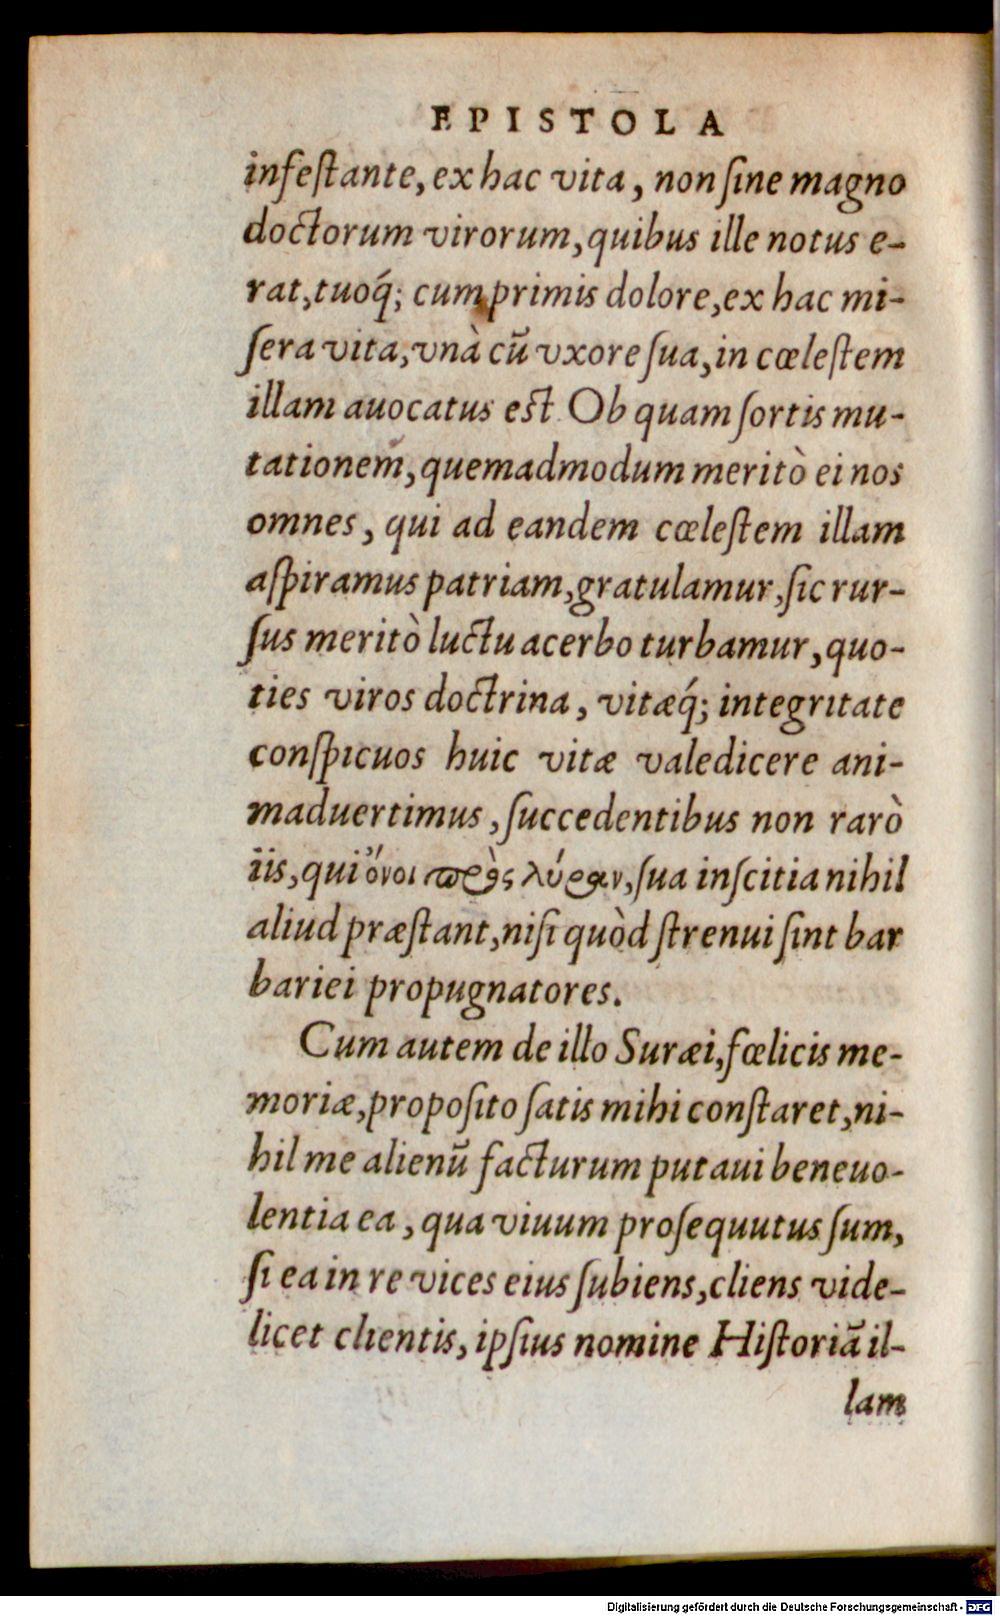 EPISTOLA
infeſtante, ex hac vita, non ſine magno
doctorum virorum, quibus ille notus e-
rat, tuoq́; cumprimis dolore, ex hac mi-
ſera vita, vnà cū vxore ſua, in cœleſtem
illam auocatus est Ob quam ſortis mu-
tationem, quemadmodum meritò ei nos
omnes, qui ad eandem cœleſtem illam
aſpiramus patriam, gratulamur, ſic rur-
ſus meritò luctu acerbo turbamur, quo-
ties viros doctrina, vitæq́; integritate
conſpicuos huic vitæ valedicere ani-
maduertimus, ſuccedentibus non rarò
iis, qui ὄνοι πρὸς λύραν, ſua inſcitia nihil
aliud præſtant, niſi quòd ſtrenui ſint bar
bariei propugnatores.
Cum autem de illo Suræi, fœlicis me-
moriæ, propoſito ſatis mihi conſtaret, ni-
hil me alienū facturum putaui beneuo-
lentia ea, qua viuum proſequutus ſum,
ſi ea in re vices eius ſubiens, cliens vide-
licet clientis, ipſius nomine Hiſtoriā il-
lam
Digitalisierung gefördert durch die Deutsche Forschungsgemeinschaft - DFG